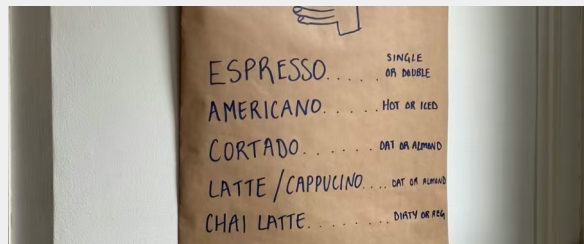 ESPRESSO..... SINGLE OR DOUBLE
AMERICANO..... HOT OR ICED
CORTADO....... OAT OR ALMOND
LATTE/CAPPUCINO.... OAT OR ALMOND
CHAI LATTE........ DIRTY OR REG